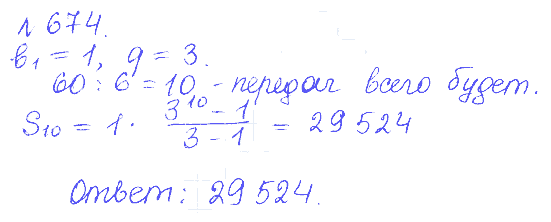 № 674.
b₁ = 1, q = 3.
60 : 6 = 10 - передач всего будет.
S₁₀ = 1 · (3¹⁰ - 1)/(3 - 1) = 29 524
Ответ: 29 524.